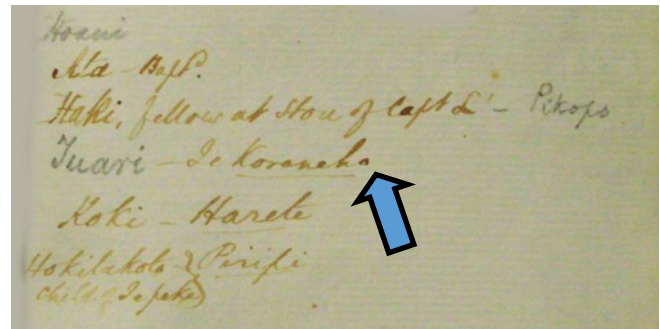 Hoani
Ata - Bapt.
Haki, fellow at store of Capt L - Pikopo
Tuari - Te Koraneho
Koki - Harete
Hokitakoto } Piripi
child of Te peke